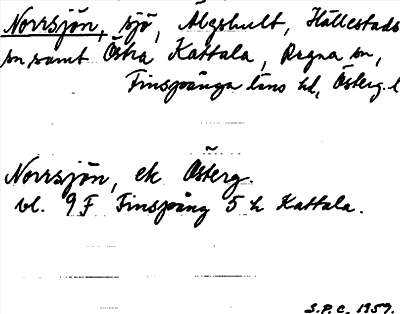 Norrsjön, sjö, Älgshult, Hällestads
sn, samt Östra Kattala, Regna sn,
Finspånga läns hd, Österg. l
Norrsjön, ek Österg.
bl. 9 F Finspång 5 h Kattala.
S.P.C. 1959.